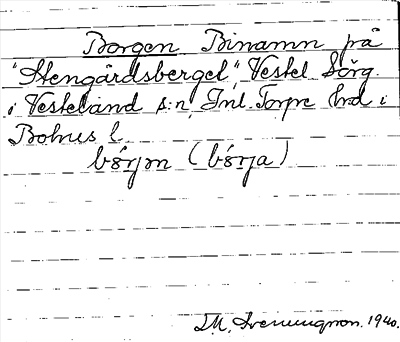 Borgen Binamn på
"Stengårdsberget", Vestel Sörg.
i Vesteland s:n, Inl. Torpe hrd i
Bohus l.
bórjm (bórja)
1940.